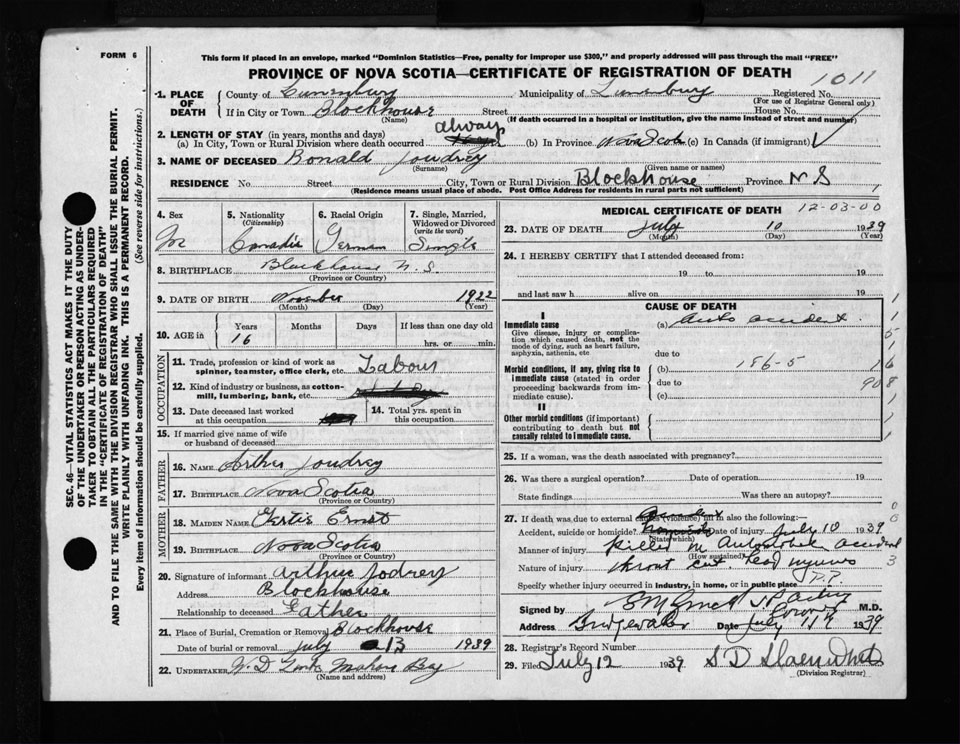 FORM 6
This form if placed in an envelope, marked "Dominion Statistics—Free, penalty for improper use $300," and properly addressed will pass through the mail "FREE"
PROVINCE OF NOVA SCOTIA—CERTIFICATE OF REGISTRATION OF DEATH
1011
SEC. 46—VITAL STATISTICS ACT MAKES IT THE DUTY
OF THE UNDERTAKER OR PERSON ACTING AS UNDER-
TAKER TO OBTAIN ALL THE PARTICULARS REQUIRED
IN THE "CERTIFICATE OF REGISTRATION OF DEATH"
AND TO FILE THE SAME WITH THE DIVISION REGISTRAR WHO SHALL ISSUE THE BURIAL PERMIT.
WRITE PLAINLY WITH UNFADING INK. THIS IS A PERMANENT RECORD.
Every item of information should be carefully supplied. (See reverse side for instructions.)
1. PLACE OF DEATH
County of Lunenburg Municipality of Lunenburg Registered No.
(For use of Registrar General only)
If in City or Town Blockhouse Street House No.
(Name) (If death occurred in a hospital or institution, give the name instead of street and number)
2. LENGTH OF STAY (in years, months and days)
(a) In City, Town or Rural Division where death occurred always (b) In Province Nova Scotia (c) In Canada (if immigrant)
3. NAME OF DECEASED Ronald Joudrey
(Surname) (Given name or names)
RESIDENCE No. Street City, Town or Rural Division Blockhouse Province N S
(Residence means usual place of abode. Post Office Address for residents in rural parts not sufficient)
4. Sex
5. Nationality (Citizenship)
6. Racial Origin German
7. Single, Married, Widowed or Divorced (write the word) Single
8. BIRTHPLACE Blockhouse N. S.
(Province or Country)
9. DATE OF BIRTH November 1922
(Month) (Day) (Year)
10. AGE in Years Months Days If less than one day old
16 hrs. or min.
OCCUPATION
11. Trade, profession or kind of work as spinner, teamster, office clerk, etc. Labour
12. Kind of industry or business, as cotton-mill, lumbering, bank, etc.
13. Date deceased last worked at this occupation
14. Total yrs. spent in this occupation
15. If married give name of wife or husband of deceased
FATHER
16. NAME Arthur Joudrey
17. BIRTHPLACE Nova Scotia
(Province or Country)
MOTHER
18. MAIDEN NAME Gertie Ernst
19. BIRTHPLACE Nova Scotia
(Province or Country)
20. Signature of informant Arthur Jodrey
Address Blockhouse
Relationship to deceased Father
21. Place of Burial, Cremation or Removal Blockhouse
Date of burial or removal July 13 1939
22. UNDERTAKER Mahone Bay
(Name and address)
MEDICAL CERTIFICATE OF DEATH 12-03-00
23. DATE OF DEATH July 10 1939
(Month) (Day) (Year)
24. I HEREBY CERTIFY that I attended deceased from:
19 to 19
and last saw h alive on 19
CAUSE OF DEATH
I
Immediate cause (a) auto accident
Give disease, injury or complication which caused death, not the mode of dying, such as heart failure, asphyxia, asthenia, etc due to
Morbid conditions, if any, giving rise to immediate cause (stated in order proceeding backwards from immediate cause).
(b) 186-5
due to
(c)
II
Other morbid conditions (if important) contributing to death but not causally related to immediate cause.
25. If a woman, was the death associated with pregnancy?
26. Was there a surgical operation? Date of operation 19
State findings Was there an autopsy?
27. If death was due to external causes (violence) fill in also the following:
Accident, suicide or homicide? Accident Date of injury July 10 1939
(State which)
Manner of injury Killed in Automobile accident
(How sustained)
Nature of injury throat cut. head injuries
Specify whether injury occurred in industry, in home, or in public place P.P.
Signed by Acting Coroner M.D.
Address Bridgewater Date July 11th 1939
28. Registrar's Record Number
29. Filed July 12 1939 S D
(Division Registrar)